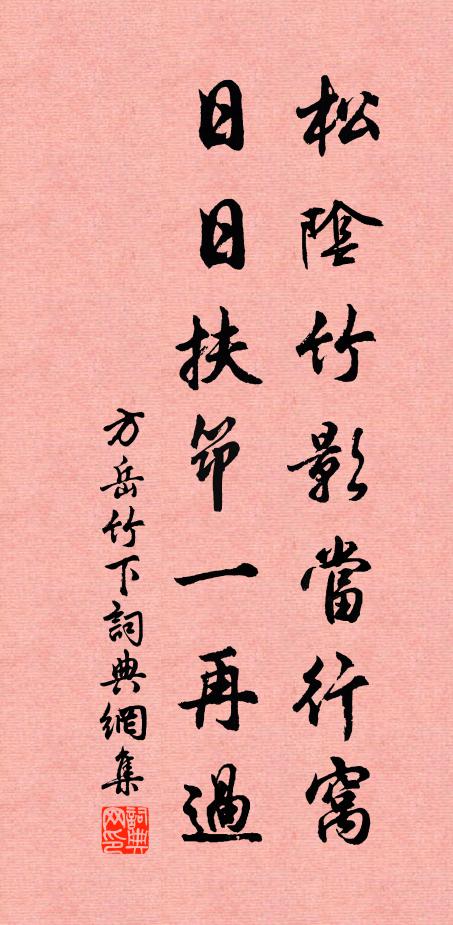 松陰竹影當行窩
日日扶筇一再過
方岳竹下詞典網集
詞典網印